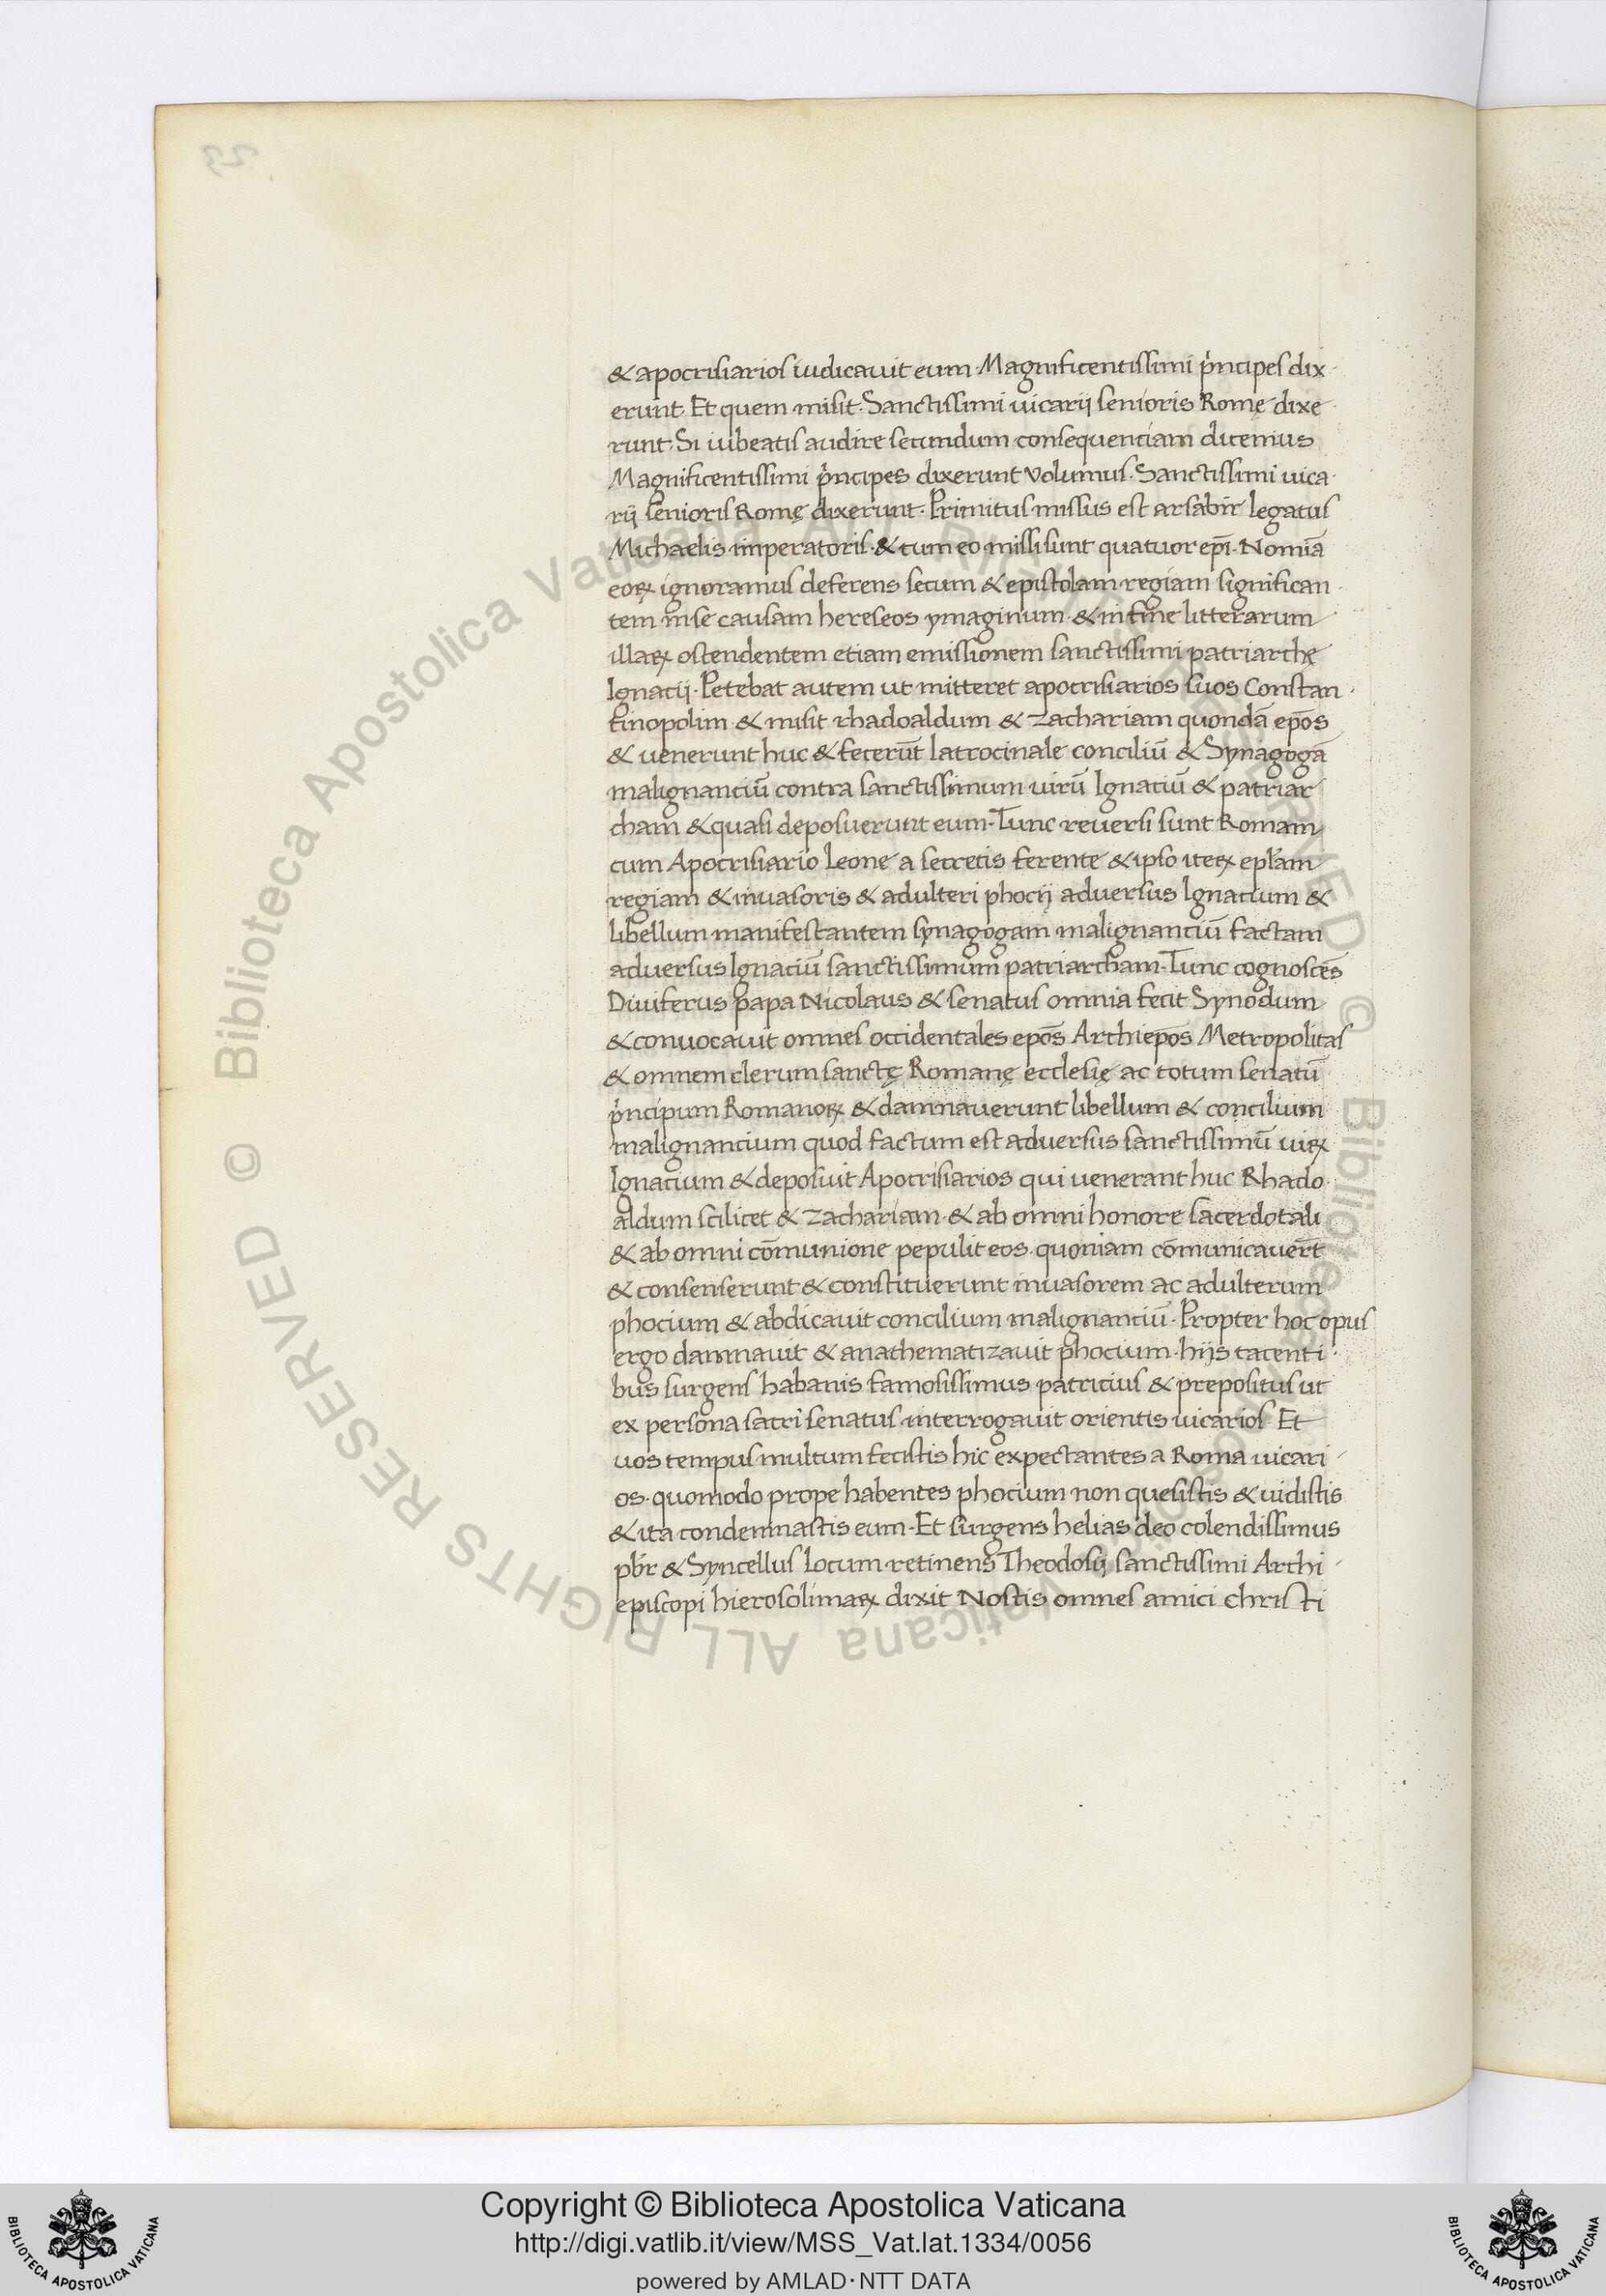 & apocrisiarios iudicauit eum · Magnificentissimi p̍ncipes dix
erunt. Et quem misit. Sanctissimi uicarij senioris Romę dixe
runt. Si iubeatis audire secundum consequenciam dicemus
Magnificentissimi p̍ncipes dixerunt Volumus. Sanctissimi uica
rij senioris Romę dixerunt. Primitus missus est arsabir legatus
Michaelis imperatoris. & cum eo missi sunt quatuor ep̄i. Nomīa
eoꝝ ignoramus deferens secum & epistolam regiam significan
tem in se causam hereseos ymaginum & in fine litterarum
illaꝝ ostendentem etiam emissionem sanctissimi patriarchę
Ignacij. Petebat autem ut mitteret apocrisiarios suos Constan
tinopolim & misit rhadoaldum & zachariam quondā ep̄os
& uenerunt huc & fecerūt latrocinale conciliū & Synagogā
malignanciū contra sanctissimum uirū Ignaciū & patriar
cham & quasi deposuerunt eum. Tunc reuersi sunt Romam
cum Apocrisiario Leone a secretis ferente & ipso iteꝝ epl̄am
regiam & inuasoris & adulteri phocij aduersus Ignacium &
libellum manifestantem synagogam malignanciū factam
aduersus Ignaciū sanctissimum patriarcham. Tunc cognoscēs
Diuiferus papa Nicolaus & senatus omnia fecit Synodum
& conuocauit omnes occidentales ep̄os Archiep̄os Metropolitas
& omnem clerum sanctę Romanę ecclesię ac totum senatū
p̍ncipum Romanoꝝ & damnauerunt libellum & concilium
malignancium quod factum est aduersus sanctissimū uiꝝ
Ignacium & deposuit Apocrisiarios qui uenerant huc Rhado
aldum scilicet & zachariam. & ab omni honore sacerdotali
& ab omni cōmunione pepulit eos. quoniam cōmunicauer̄t
& consenserunt & constituerunt inuasorem ac adulterum
phocium & abdicauit concilium malignanciū. Propter hoc opus
ergo damnauit & anathematizauit phocium. hijs tacenti
bus surgens habanis famosissimus patricius & prepositus ut
ex persona sacri senatus interrogauit orientis uicarios Et
uos tempus multum fecistis hic expectantes a Roma uicari
os. quomodo prope habentes phocium non quesistis & uidistis
& ita condemnastis eum. Et surgens helias deo colendissimus
pb̄r & Syncellus Locum retinens Theodosij sanctissimi Archi
episcopi hierosolimaꝝ dixit Nostis omnes amici christi
Copyright © Biblioteca Apostolica Vaticana
http://digi.vatlib.it/view/MSS_Vat.lat.1334/0056
powered by AMLAD·NTT DATA